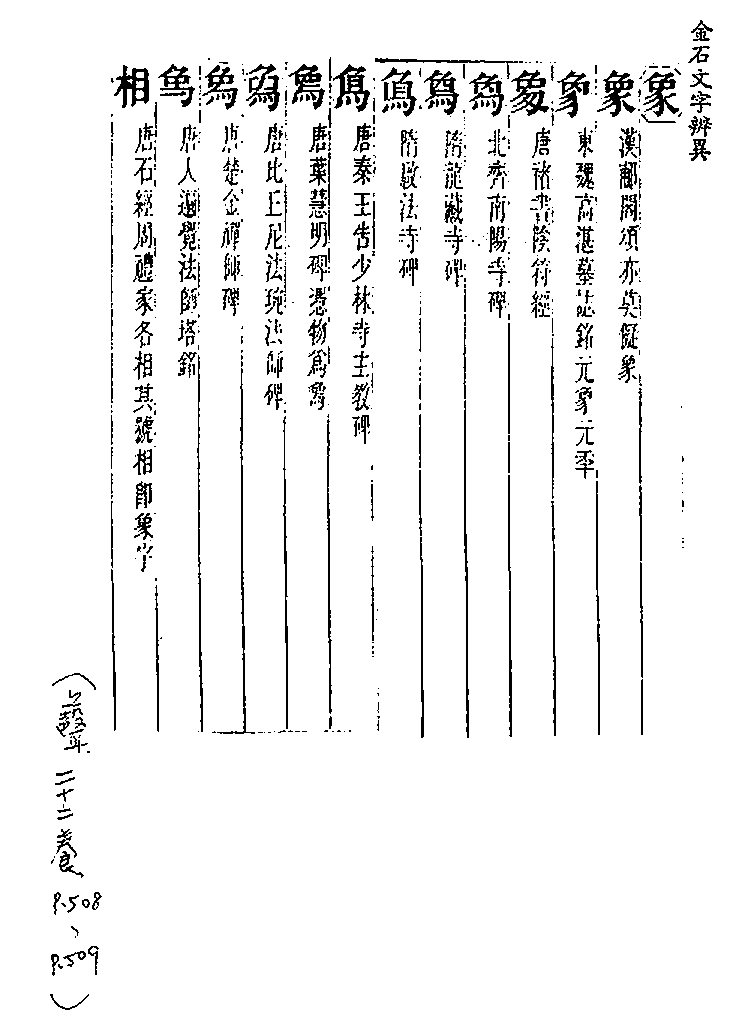 金石文字辨異
象
象 漢郙閣頌亦莫儗象
象 東魏高湛墓誌銘元象元年
象 唐褚書陰符經
北齊南陽寺碑
隋龍藏寺碑
隋啟法寺碑
唐秦王告少林寺主教碑
唐葉慧明碑憑物為
唐比丘尼法琬法師碑
唐楚金禪師碑
唐人遍覺法師塔銘
相 唐石經周禮家各相其號相即象字
二十二養
P.508
P.509